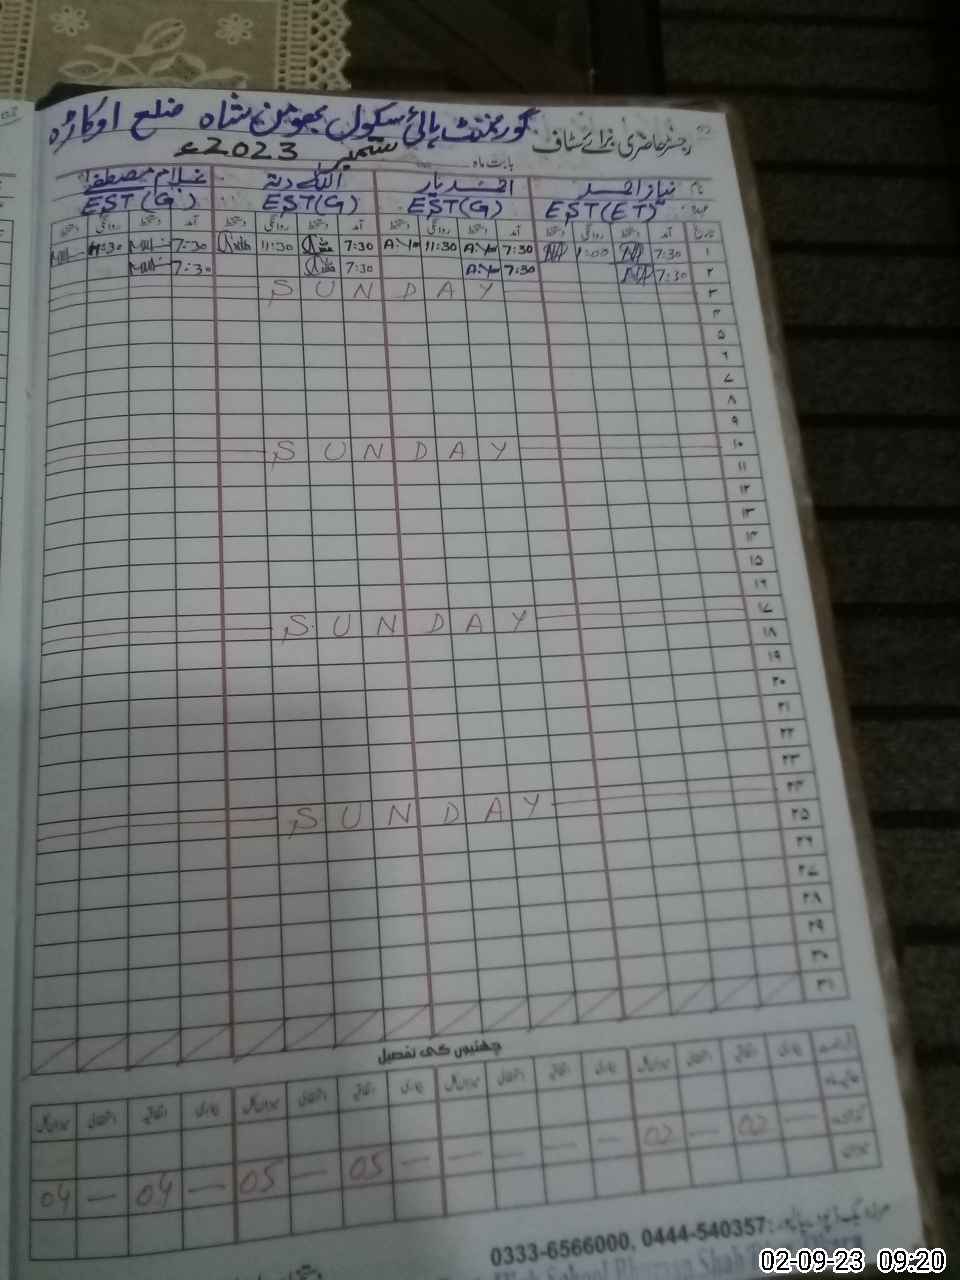 رجسٹر حاضری برائے سٹاف گورنمنٹ ہائی سکول بھومن شاہ ضلع اوکاڑہ
بابت ماہ ستمبر 2023ء
نام نیاز احمد احمد یار اللہ دتہ غلام مصطفیٰ
عہدہ EST(ET) EST(G) EST(G) EST(G)
تاریخ آمد دستخط روانگی دستخط آمد دستخط روانگی دستخط آمد دستخط روانگی دستخط آمد دستخط روانگی دستخط
۱ 7:30 1:00 7:30 11:30 7:30 11:30 7:30 11:30
۲ 7:30 7:30 7:30 7:30
۳ SUNDAY
۴
۵
۶
۷
۸
۹
۱۰ SUNDAY
۱۱
۱۲
۱۳
۱۴
۱۵
۱۶
۱۷ SUNDAY
۱۸
۱۹
۲۰
۲۱
۲۲
۲۳
۲۴ SUNDAY
۲۵
۲۶
۲۷
۲۸
۲۹
۳۰
۳۱
چھٹیوں کی تفصیل
بیماری اتفاقیہ استحقاقی میزان کل بیماری اتفاقیہ استحقاقی میزان کل بیماری اتفاقیہ استحقاقی میزان کل بیماری اتفاقیہ استحقاقی میزان کل
— 02 — 02 — — — — — 05 — 05 — 04 — 04
0333-6566000, 0444-540357:
High School Bhuman Shah
02-09-23 09:20